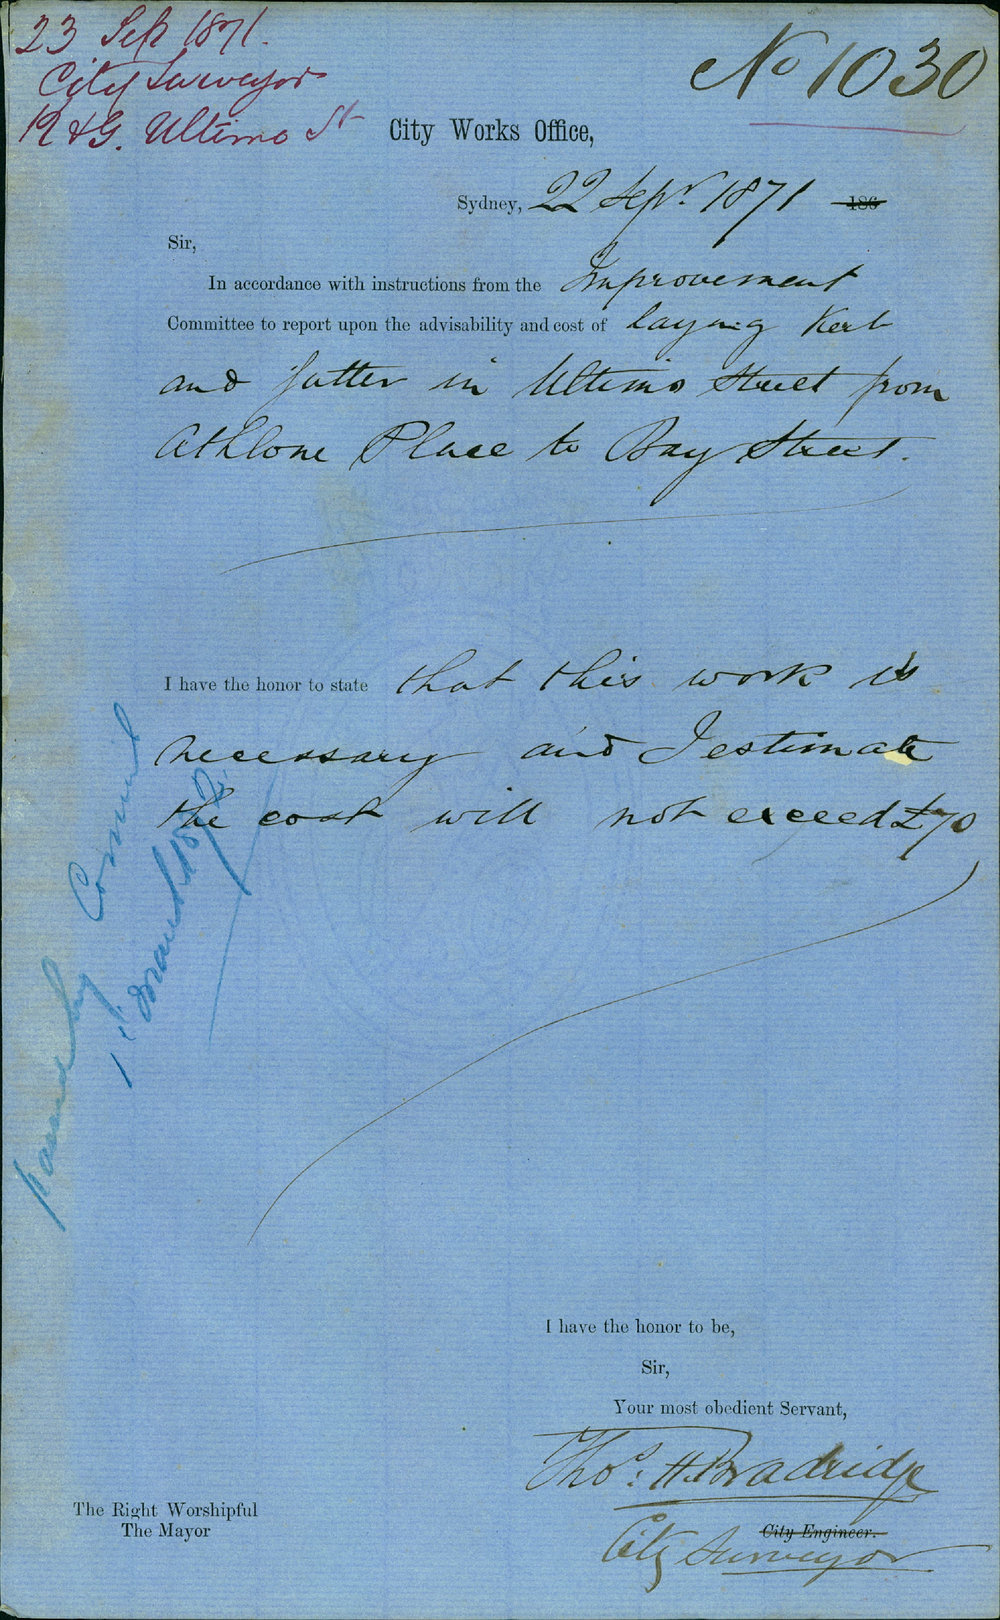 23 Sep 1871.
City Surveyor
K & G. Ultimo St
No 1030
City Works Office,
Sydney, 22 Sepr. 1871 186
Sir,
In accordance with instructions from the Improvement
Committee to report upon the advisability and cost of laying Kerb
and Gutter in Ultimo Street from
Athlone Place to Bay Street.
I have the honor to state that this work is
necessary and I estimate
the cost will not exceed £70
Passed by Commit
1st March 1872
I have the honor to be,
Sir,
Your most obedient Servant,
Thos. H. Bradridge
City Engineer.
City Surveyor
The Right Worshipful
The Mayor